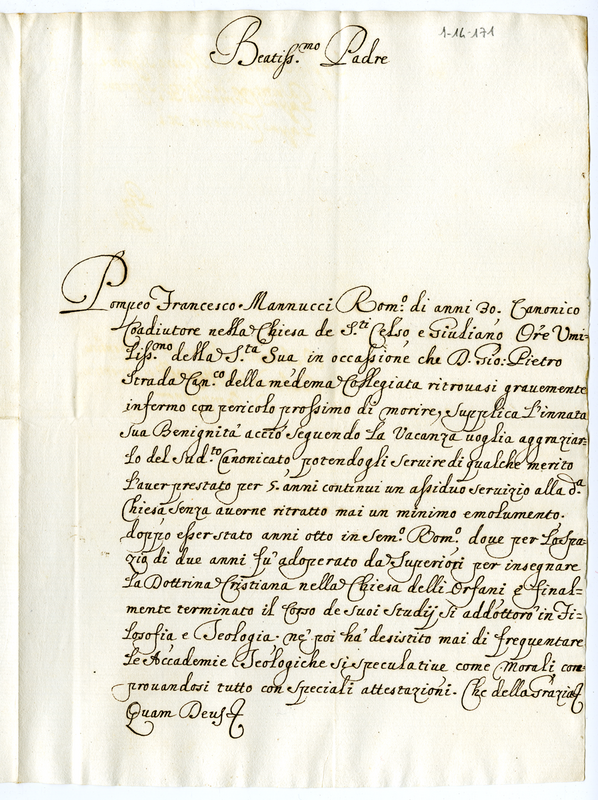 1-16-171
Beatiss.mo Padre
Pompeo Francesco Mannucci Rom.o di anni 30. Canonico
Coadiutore nella Chiesa de S.ti Celso e Giuliano Ore Umi-
liss.mo della S.ta Sua in occassione che D. Gio: Pietro
Strada Can.co della medema Collegiata ritrovasi gravemente
infermo con pericolo prossimo di morire, supplica l'innata
sua Benignità acciò seguendo la Vacanza voglia aggraziar-
lo del Sud.to Canonicato potendogli servire di qualche merito
l'aver prestato per 5. anni continui un assiduo servizio alla d.a
Chiesa senza averne ritratto mai un minimo emolumento.
doppo esser stato anni otto in Sem.o Rom.o dove per lo spa-
zio di due anni fu' adoperato da Superiori per insegnare
la Dottrina Cristiana nella Chiesa delli Orfani e final-
mente terminato il Corso de suoi Studij si addottorò in Fi-
losofia e Teologia. ne' poi ha' desistito mai di frequentare
le Accademie Teologiche si speculative come Morali com
provandosi tutto con speciali attestazioni. Che della Grazia
Quam Deus